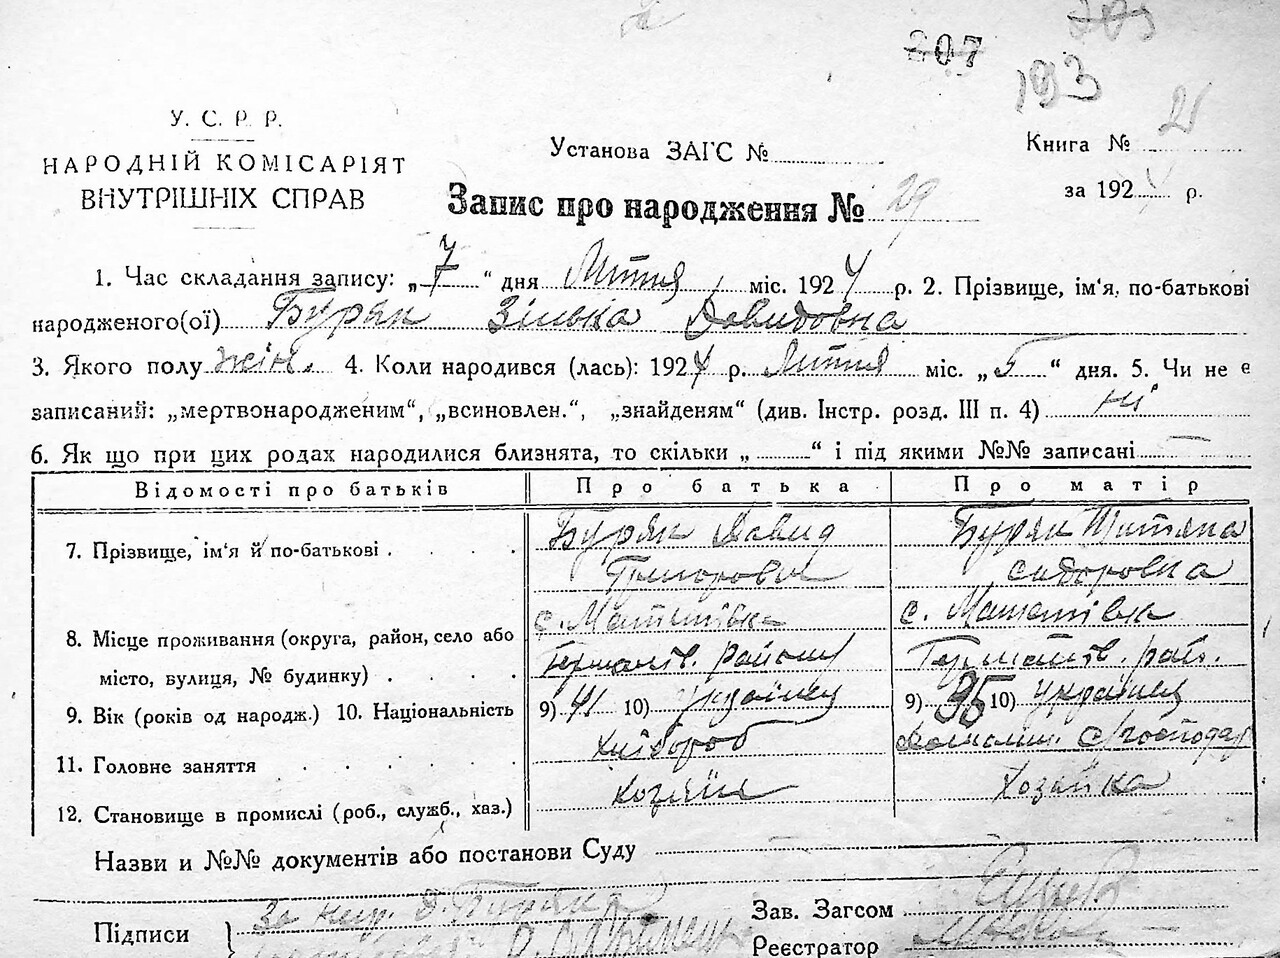 207
193
У. С. Р. Р.
НАРОДНІЙ КОМІСАРІЯТ
ВНУТРІШНІХ СПРАВ
Установа ЗАГС №
Книга № 2
за 1924 р.
Запис про народження № 29
1. Час складання запису: „7“ дня Липня міс. 1924 р. 2. Прізвище, ім'я, по-батькові
народженого(ої) Буряк Зінька Давидовна
3. Якого полу жін. 4. Коли народився (лась): 1924 р. Липня міс. „5“ дня. 5. Чи не є
записаний: „мертвонародженим“, „всиновлен.“, „знайденям“ (див. Інстр. розд. III п. 4) ні
6. Як що при цих родах народилися близнята, то скільки „ “ і під якими №№ записані
Відомості про батьків Про батька Про матір
7. Прізвище, ім'я й по-батькові Буряк Давид Буряк Титяна
Григорович сидоровна
с. с.
8. Місце проживання (округа, район, село або
місто, вулиця, № будинку) району рай.
9. Вік (років од народж.) 10. Національність 9) 41 10) Українец 9) 35 10) Українка
11. Головне заняття Хлібороб господар
12. Становище в промислі (роб., служб., хаз.) хозяїн Хозяйка
Назви и №№ документів або постанови Суду
Підписи За неп. Д. Буряка
Зав. Загсом
Реєстратор